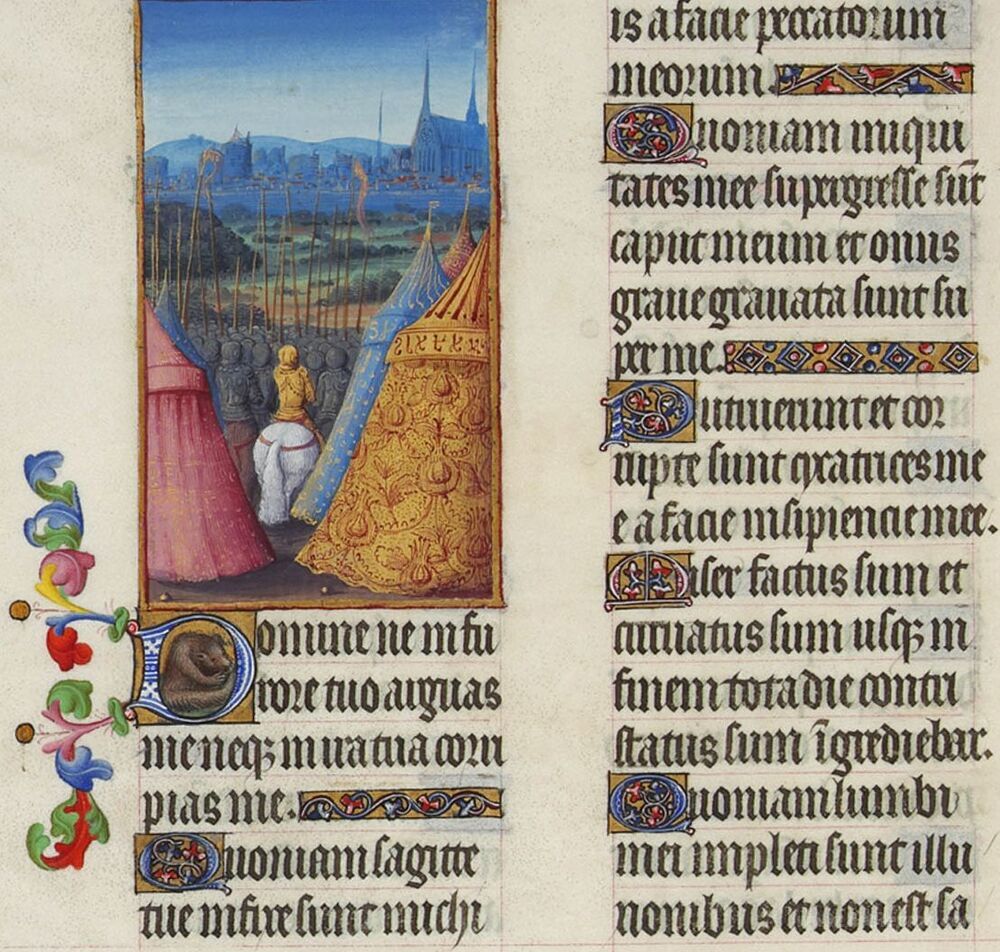 Domine ne in fu
rore tuo arguas
me neq3 in ira tua corri
pias me.
Quoniam sagitte
tue infixe sunt michi
is a facie peccatorum
meorum.
Quoniam iniqui
tates mee supergresse sūt
caput meum et onus
graue grauata sunt su
per me.
Putruerunt et cor
rupte sunt cicatrices me
e a facie insipiencie mee.
Miser factus sum et
curuatus sum usq3 in
finem tota die contri
status sum īgrediebar.
Quoniam lumbi
mei impleti sunt illu
nonibus et non est sa